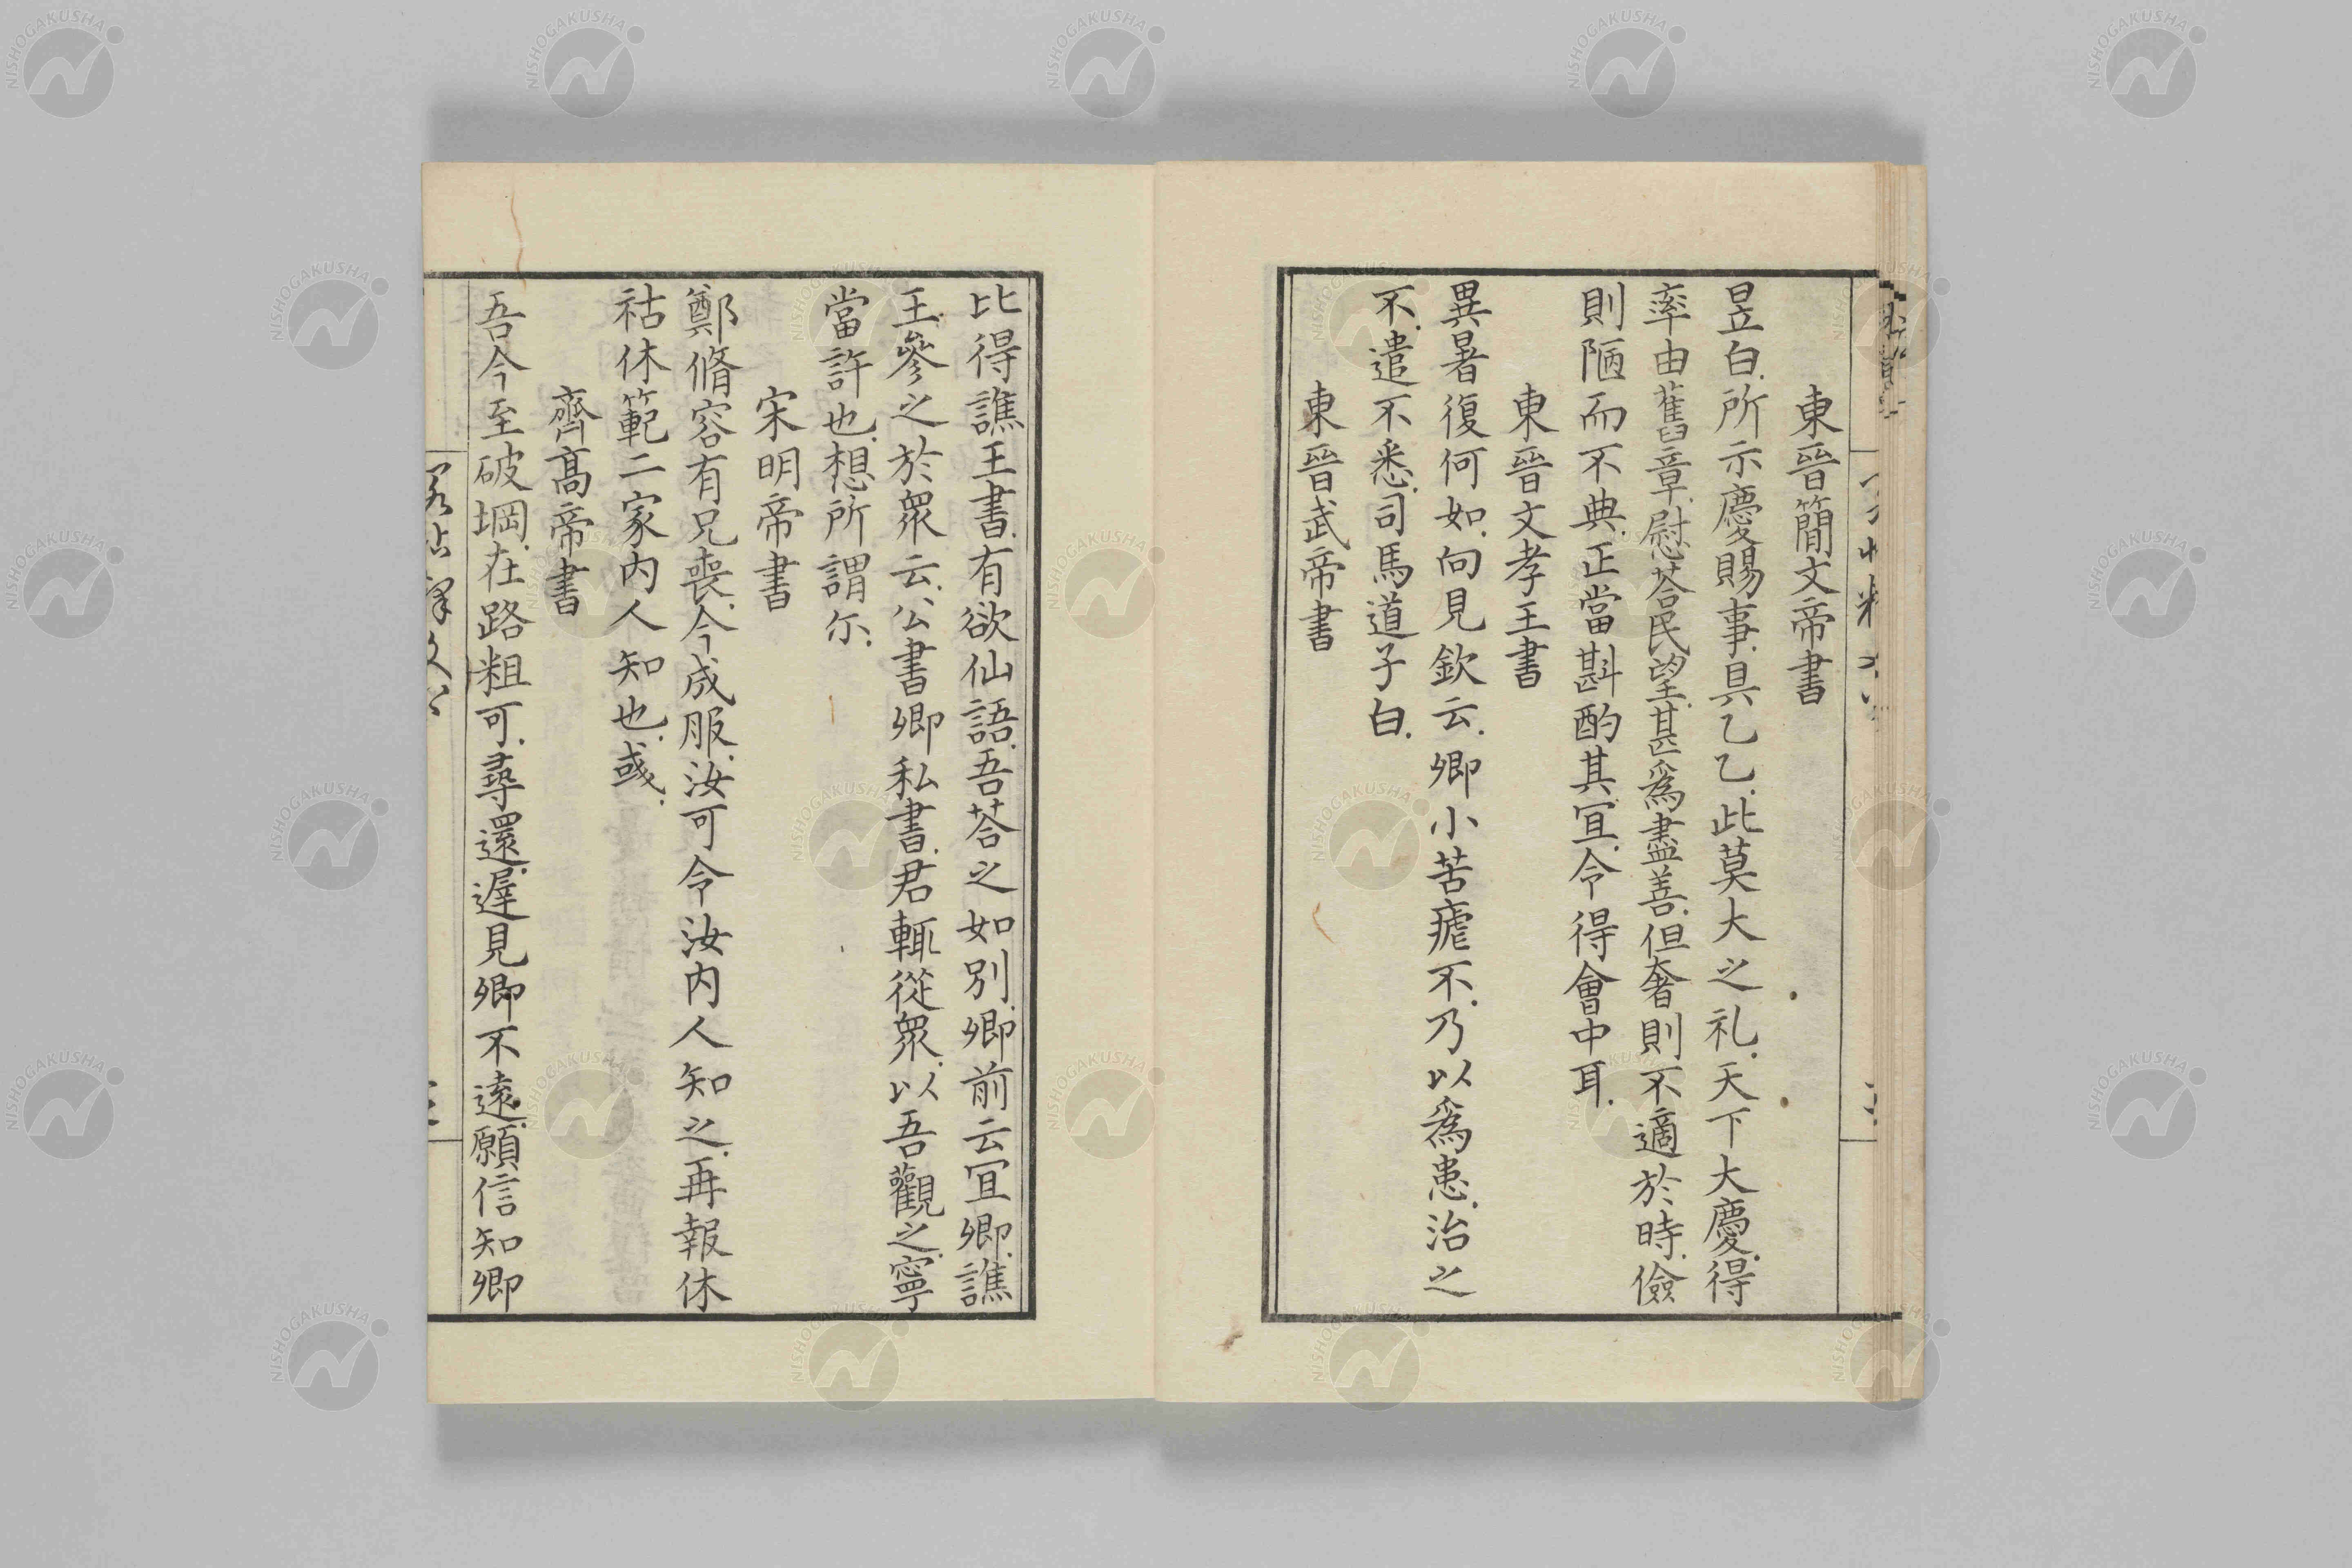 東晉簡文帝書
昱白.所示慶賜事.具乙乙.此莫大之礼.天下大慶.得
率由舊章.慰荅民望.甚爲盡善.但奢則不適於時.儉
則陋而不典.正當斟酌其宜.令得會中耳.
東晉文孝王書
異暑復何如.向見欽云.卿小苦瘧不.乃以爲患.治之
不.遣不悉.司馬道子白.
東晉武帝書
比得譙王書.有欲仙語.吾荅之如別.卿前云宜卿.譙
王.參之於衆云.公書卿私書.君輒從衆.以吾觀之.寧
當許也.想所謂尓.
宋明帝書
鄭脩容有兄喪.今成服.汝可令汝内人知之.再報休
祜休範二家内人知也.彧.
齊髙帝書
吾今至破堽.在路粗可.尋還.遲見卿不遠.願信知卿